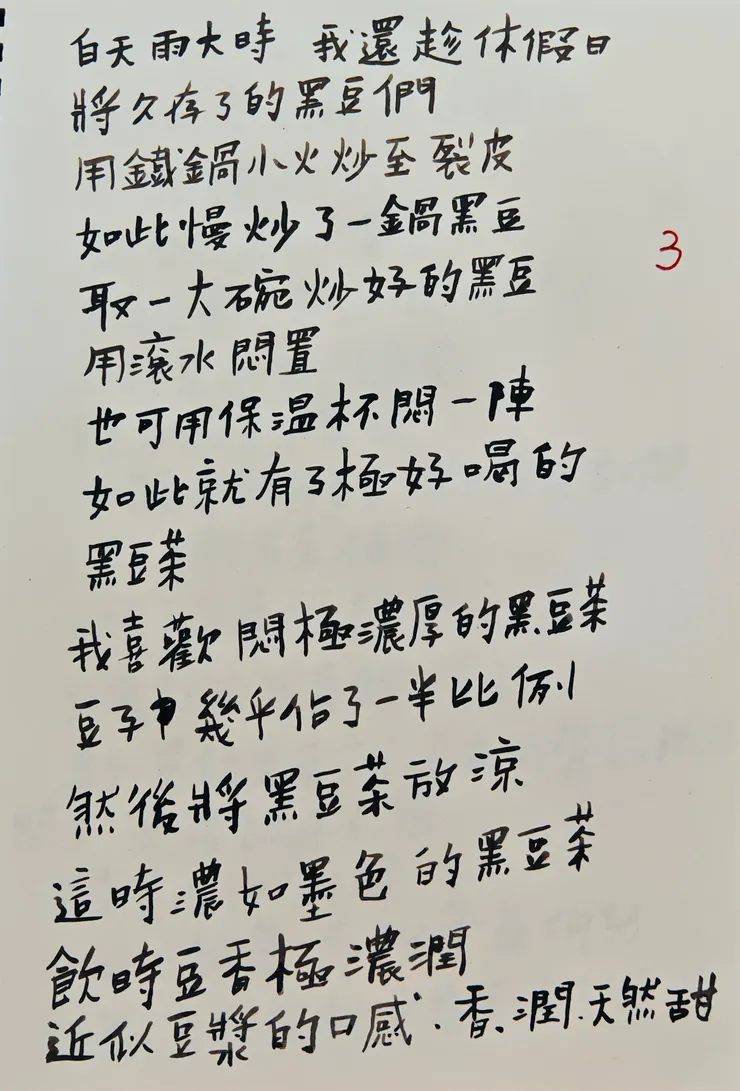 白天雨大時 我還趁休假日
將久存了的黑豆們
用鐵鍋小火炒至裂皮
如此慢炒了一鍋黑豆
3
取一大碗炒好的黑豆
用滾水悶置
也可用保溫杯悶一陣
如此就有了極好喝的
黑豆茶
我喜歡悶極濃厚的黑豆茶
豆子幾乎佔了一半比例
然後將黑豆茶放涼
這時濃如墨色的黑豆茶
飲時豆香極濃潤
近似豆漿的口感.香.潤.天然甜